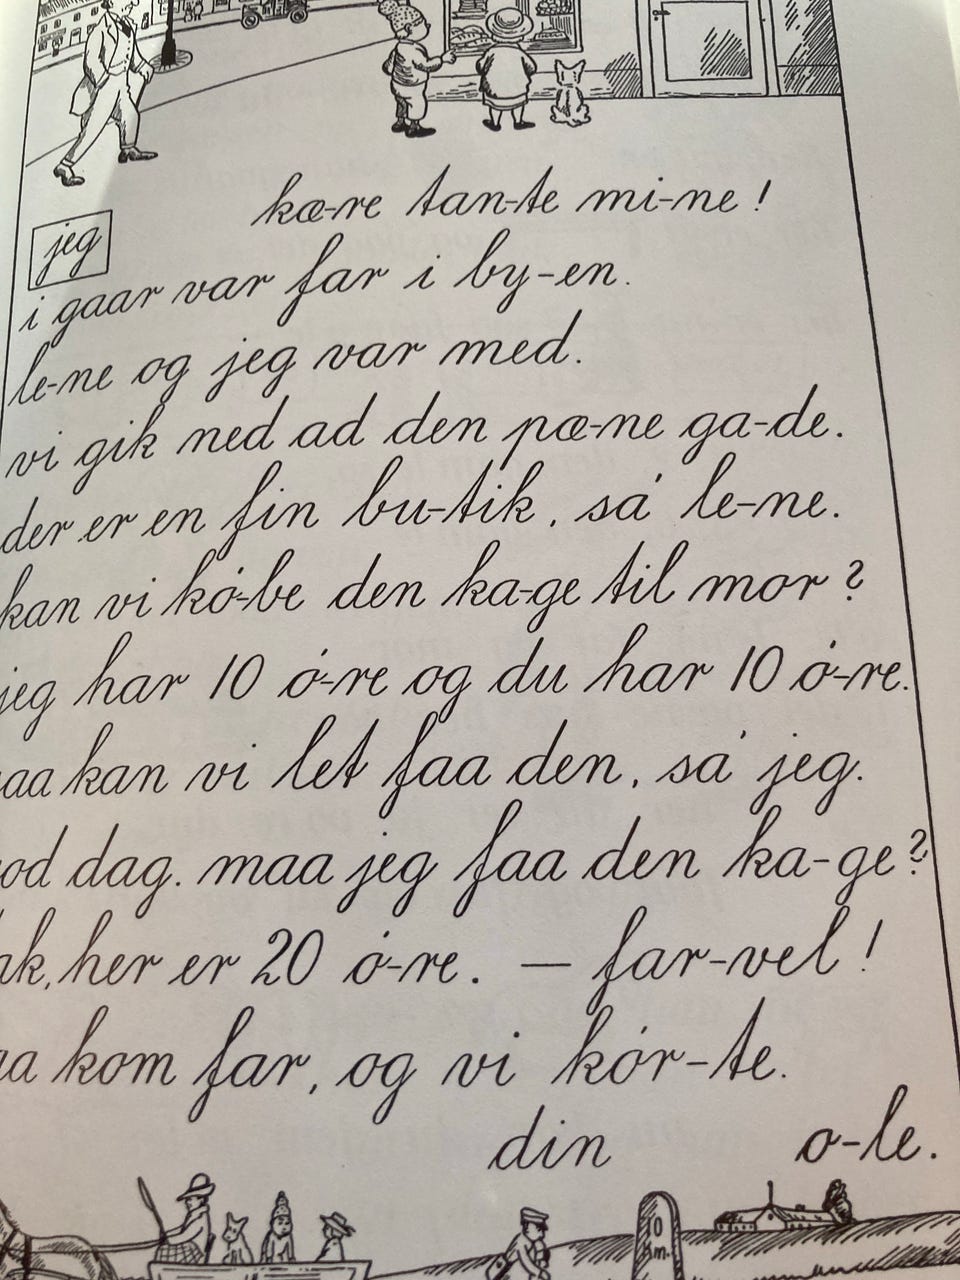 kæ-re tan-te mi-ne!
jeg
i gaar var far i by-en.
le-ne og jeg var med.
vi gik ned ad den pæ-ne ga-de.
der er en fin bu-tik, sa' le-ne.
kan vi kø-be den ka-ge til mor?
jeg har 10 ø-re og du har 10 ø-re.
kan vi let faa den, sa' jeg.
dag. maa jeg faa den ka-ge?
her er 20 ø-re. — far-vel!
kom far, og vi kør-te.
din o-le.
10 km.